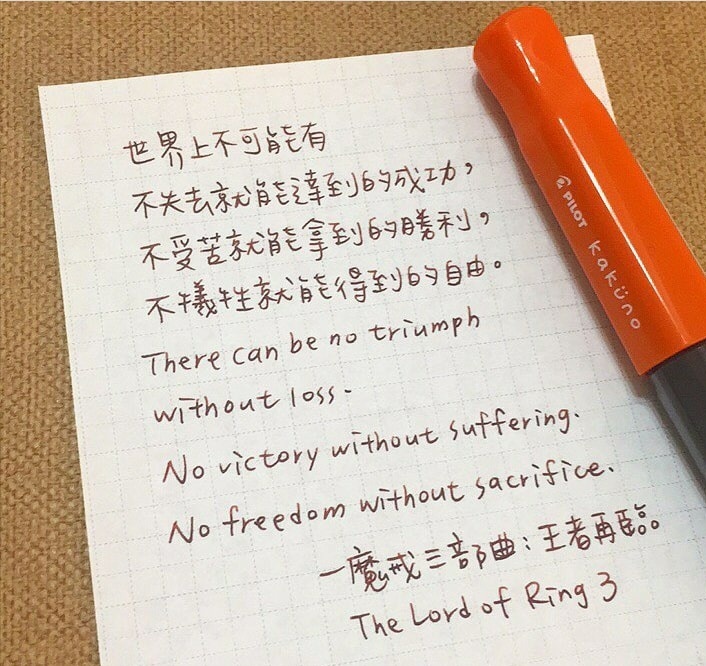 世界上不可能有
不失去就能達到的成功，
不受苦就能拿到的勝利，
不犧牲就能得到的自由。
There can be no triumph
without loss.
No victory without suffering.
No freedom without sacrifice.
—魔戒三部曲：王者再臨。
The Lord of Ring 3
PILOT kaküno